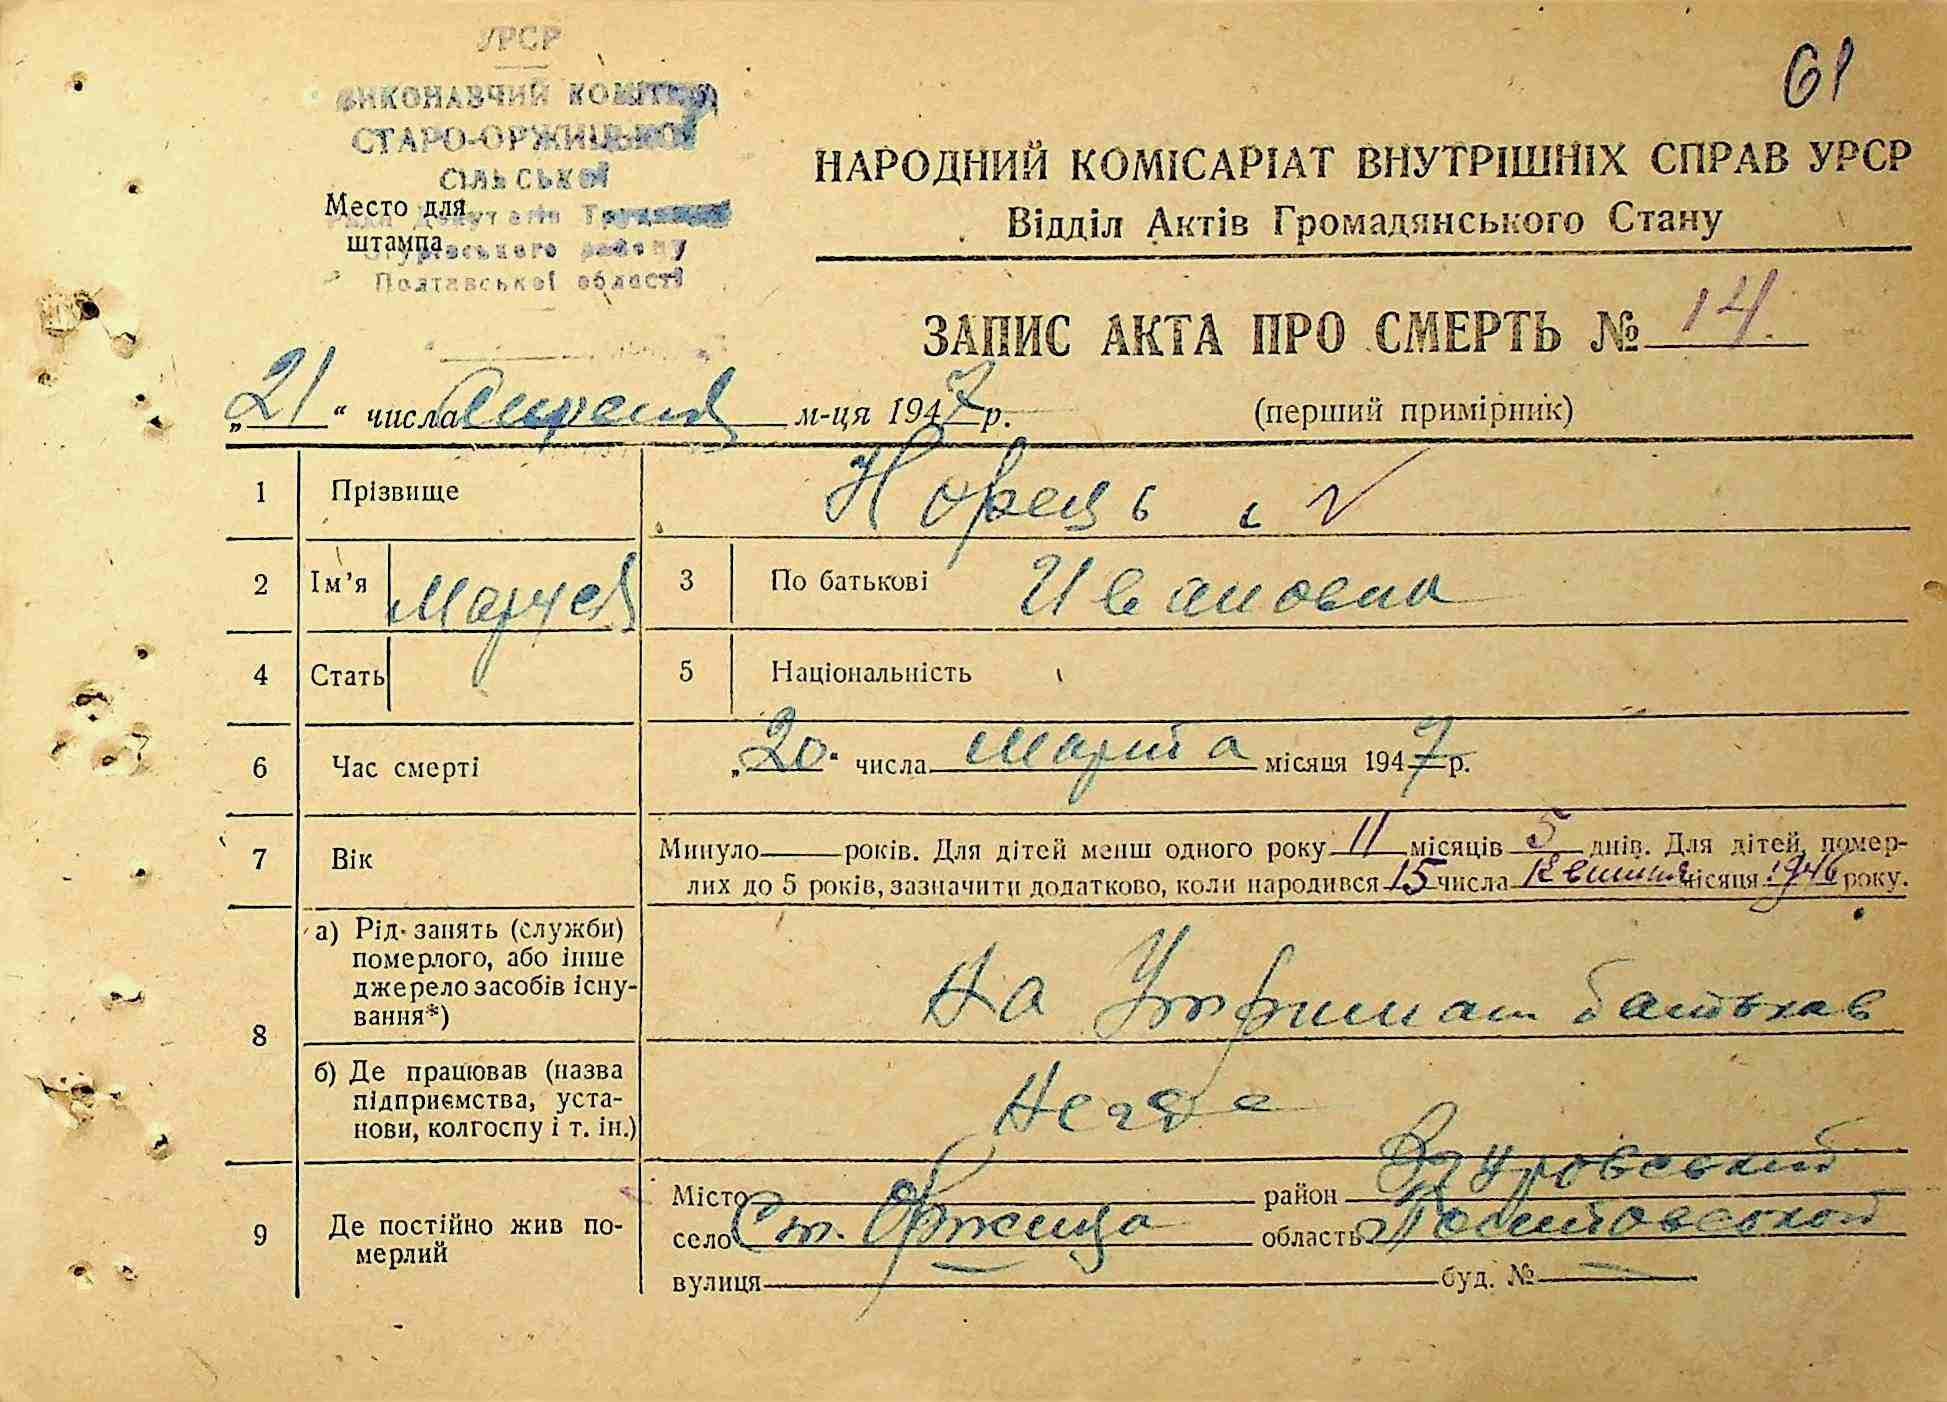 УРСР
ВИКОНАВЧИЙ КОМІТЕТ
СТАРО-ОРЖИЦЬКОЇ
СІЛЬСЬКОЇ
Ради Депутатів Трудящих
Згурівського району
Полтавської області
Место для
штампа
61
НАРОДНИЙ КОМІСАРІАТ ВНУТРІШНІХ СПРАВ УРСР
Відділ Актів Громадянського Стану
ЗАПИС АКТА ПРО СМЕРТЬ № 14.
„21“ числа Апреля м-ця 1947 р.
(перший примірник)
1 Прізвище Норець
2 Ім'я Маруся 3 По батькові Ивановна
4 Стать 5 Національність
6 Час смерті „20“ числа Марта місяця 1947 р.
7 Вік Минуло — років. Для дітей менш одного року 11 місяців 5 днів. Для дітей, помер-
лих до 5 років, зазначити додатково, коли народився 15 числа Квітня місяця 1946 року.
8 а) Рід занять (служби)
померлого, або інше
джерело засобів існу-
вання*)
На Утриман батьков
б) Де працював (назва
підприємства, уста-
нови, колгоспу і т. ін.)
Негде
9 Де постійно жив по-
мерлий
Місто район Згуровський
село Ст. Оржица область Полтовской
вулиця буд. №